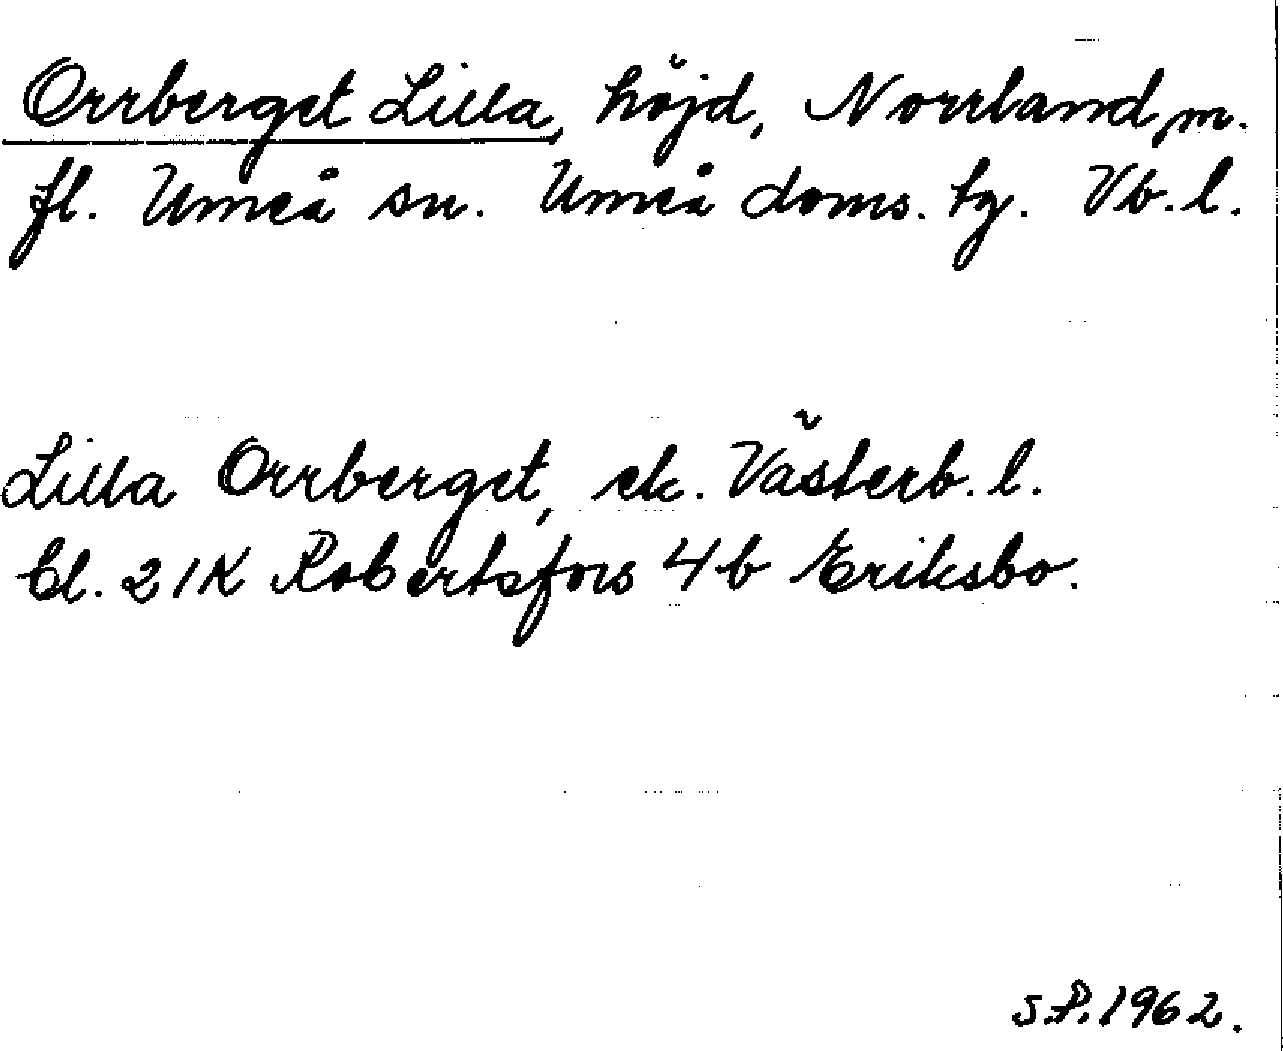 Orrberget Lilla, höjd, Norrland, m.
fl. Umeå sn. Umeå doms. tg. Vb. l.
Lilla Orrberget, ek. Västerb. l.
Bl. 21K Robertsfors 4b Eriksbo.
S.P. 1962.